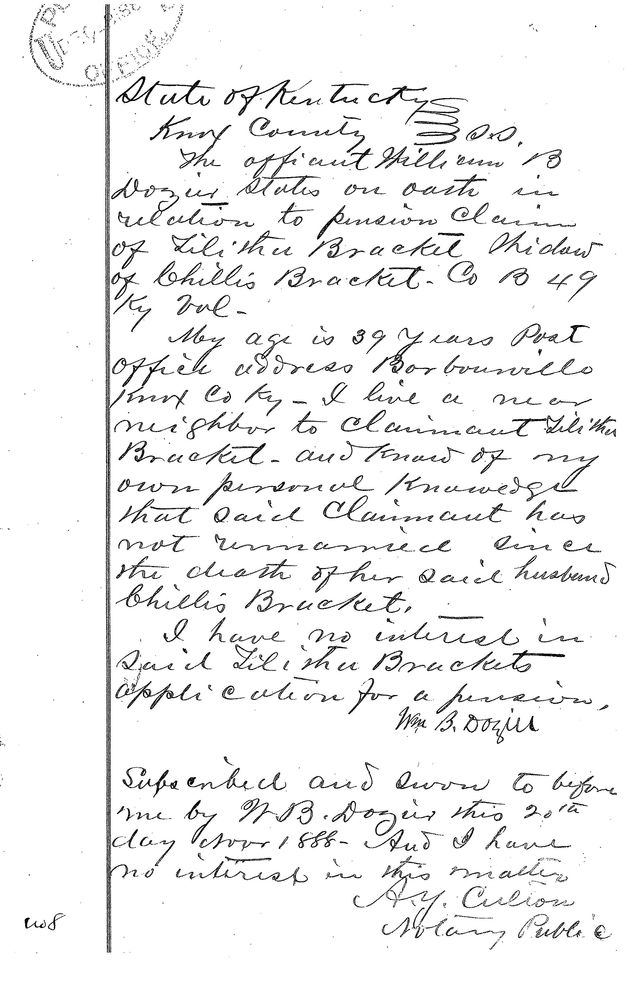 DEC 9 188
OFFICE
State of Kentucky
Knox County } S.S.
The affiant William B
Dozier states on oath in
relation to pension Claim
of Tilitha Bracket Widow
of Chillis Bracket - Co B 49
Ky Vol -
My age is 39 years Post
office address Barbourville
Knox Co Ky - I live a near
neighbor to Claimant Tilitha
Bracket - and know of my
own personal Knowedge
that said Claimant has
not remarried since
the death of her said husband
Chillis Bracket.
I have no interest in
said Tilitha Brackets
application for a pension,
Wm B. Dozier
Subscribed and sworn to before
me by W B. Dozier this 20th
day Nov 1888 - And I have
no interest in this matter
A.Y. Culton
Notary Public